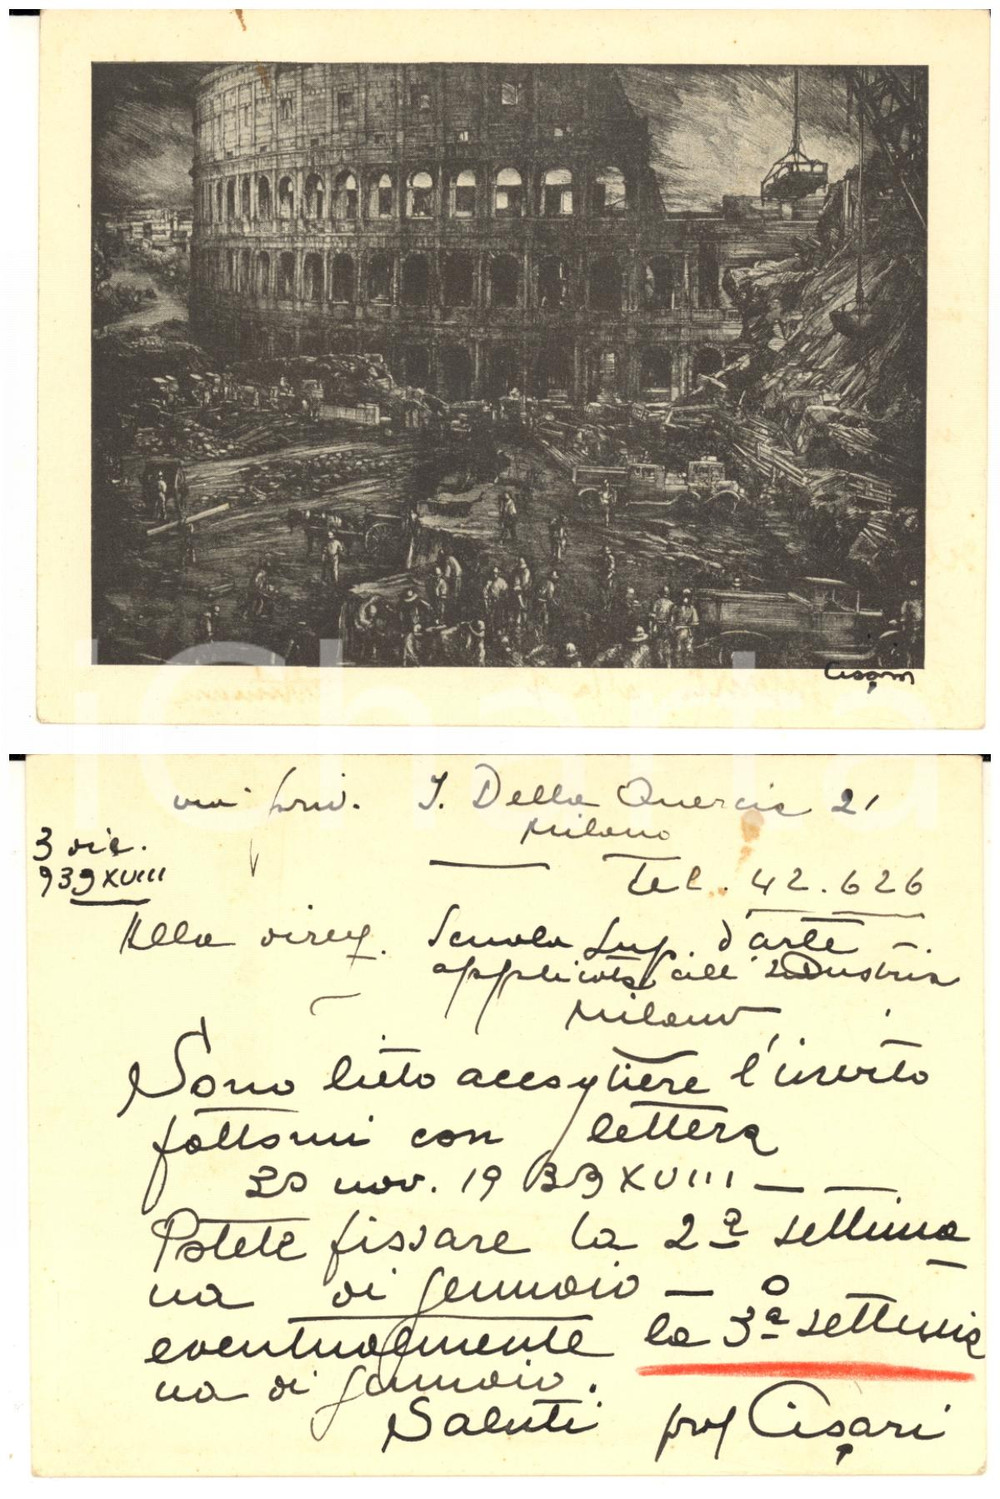 Cisari
via priv. J. Della Quercia 21
Milano
3 dic.
939 XVIII
Tel. 42.626
Alla direz. Scuola Sup. d'arte
applicata all'industria
Milano
Sono lieto accettare l'invito
fattomi con lettera
30 nov. 1939 XVIII
Potete fissare la 2ª settima
na di gennaio — o
eventualmente la 3ª settima
na di gennaio.
Saluti prof Cisari
iCharta